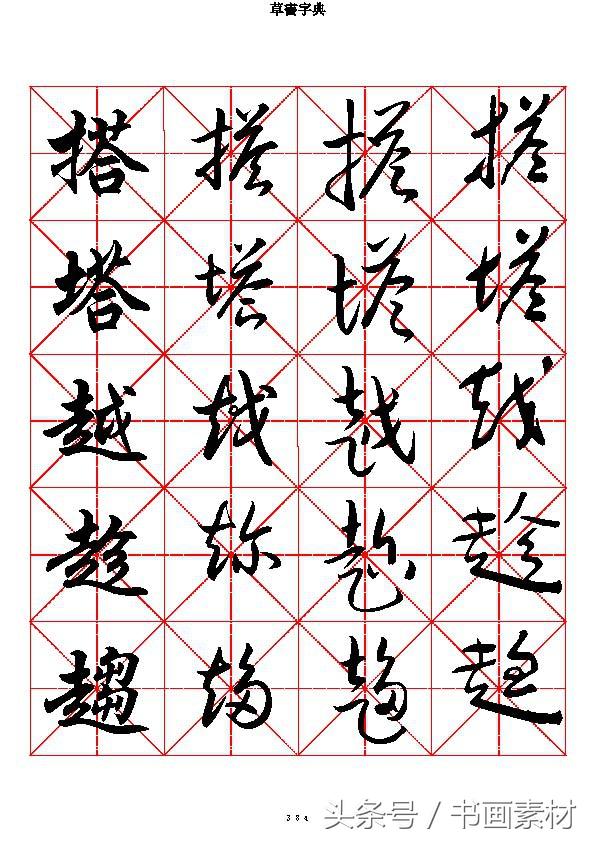 草書字典
搭 搭 搭 搭
塔 塔 塔 塔
越 越 越 越
趁 趁 趁 趁
趨 趨 趨 趨
384
头条号 / 书画素材